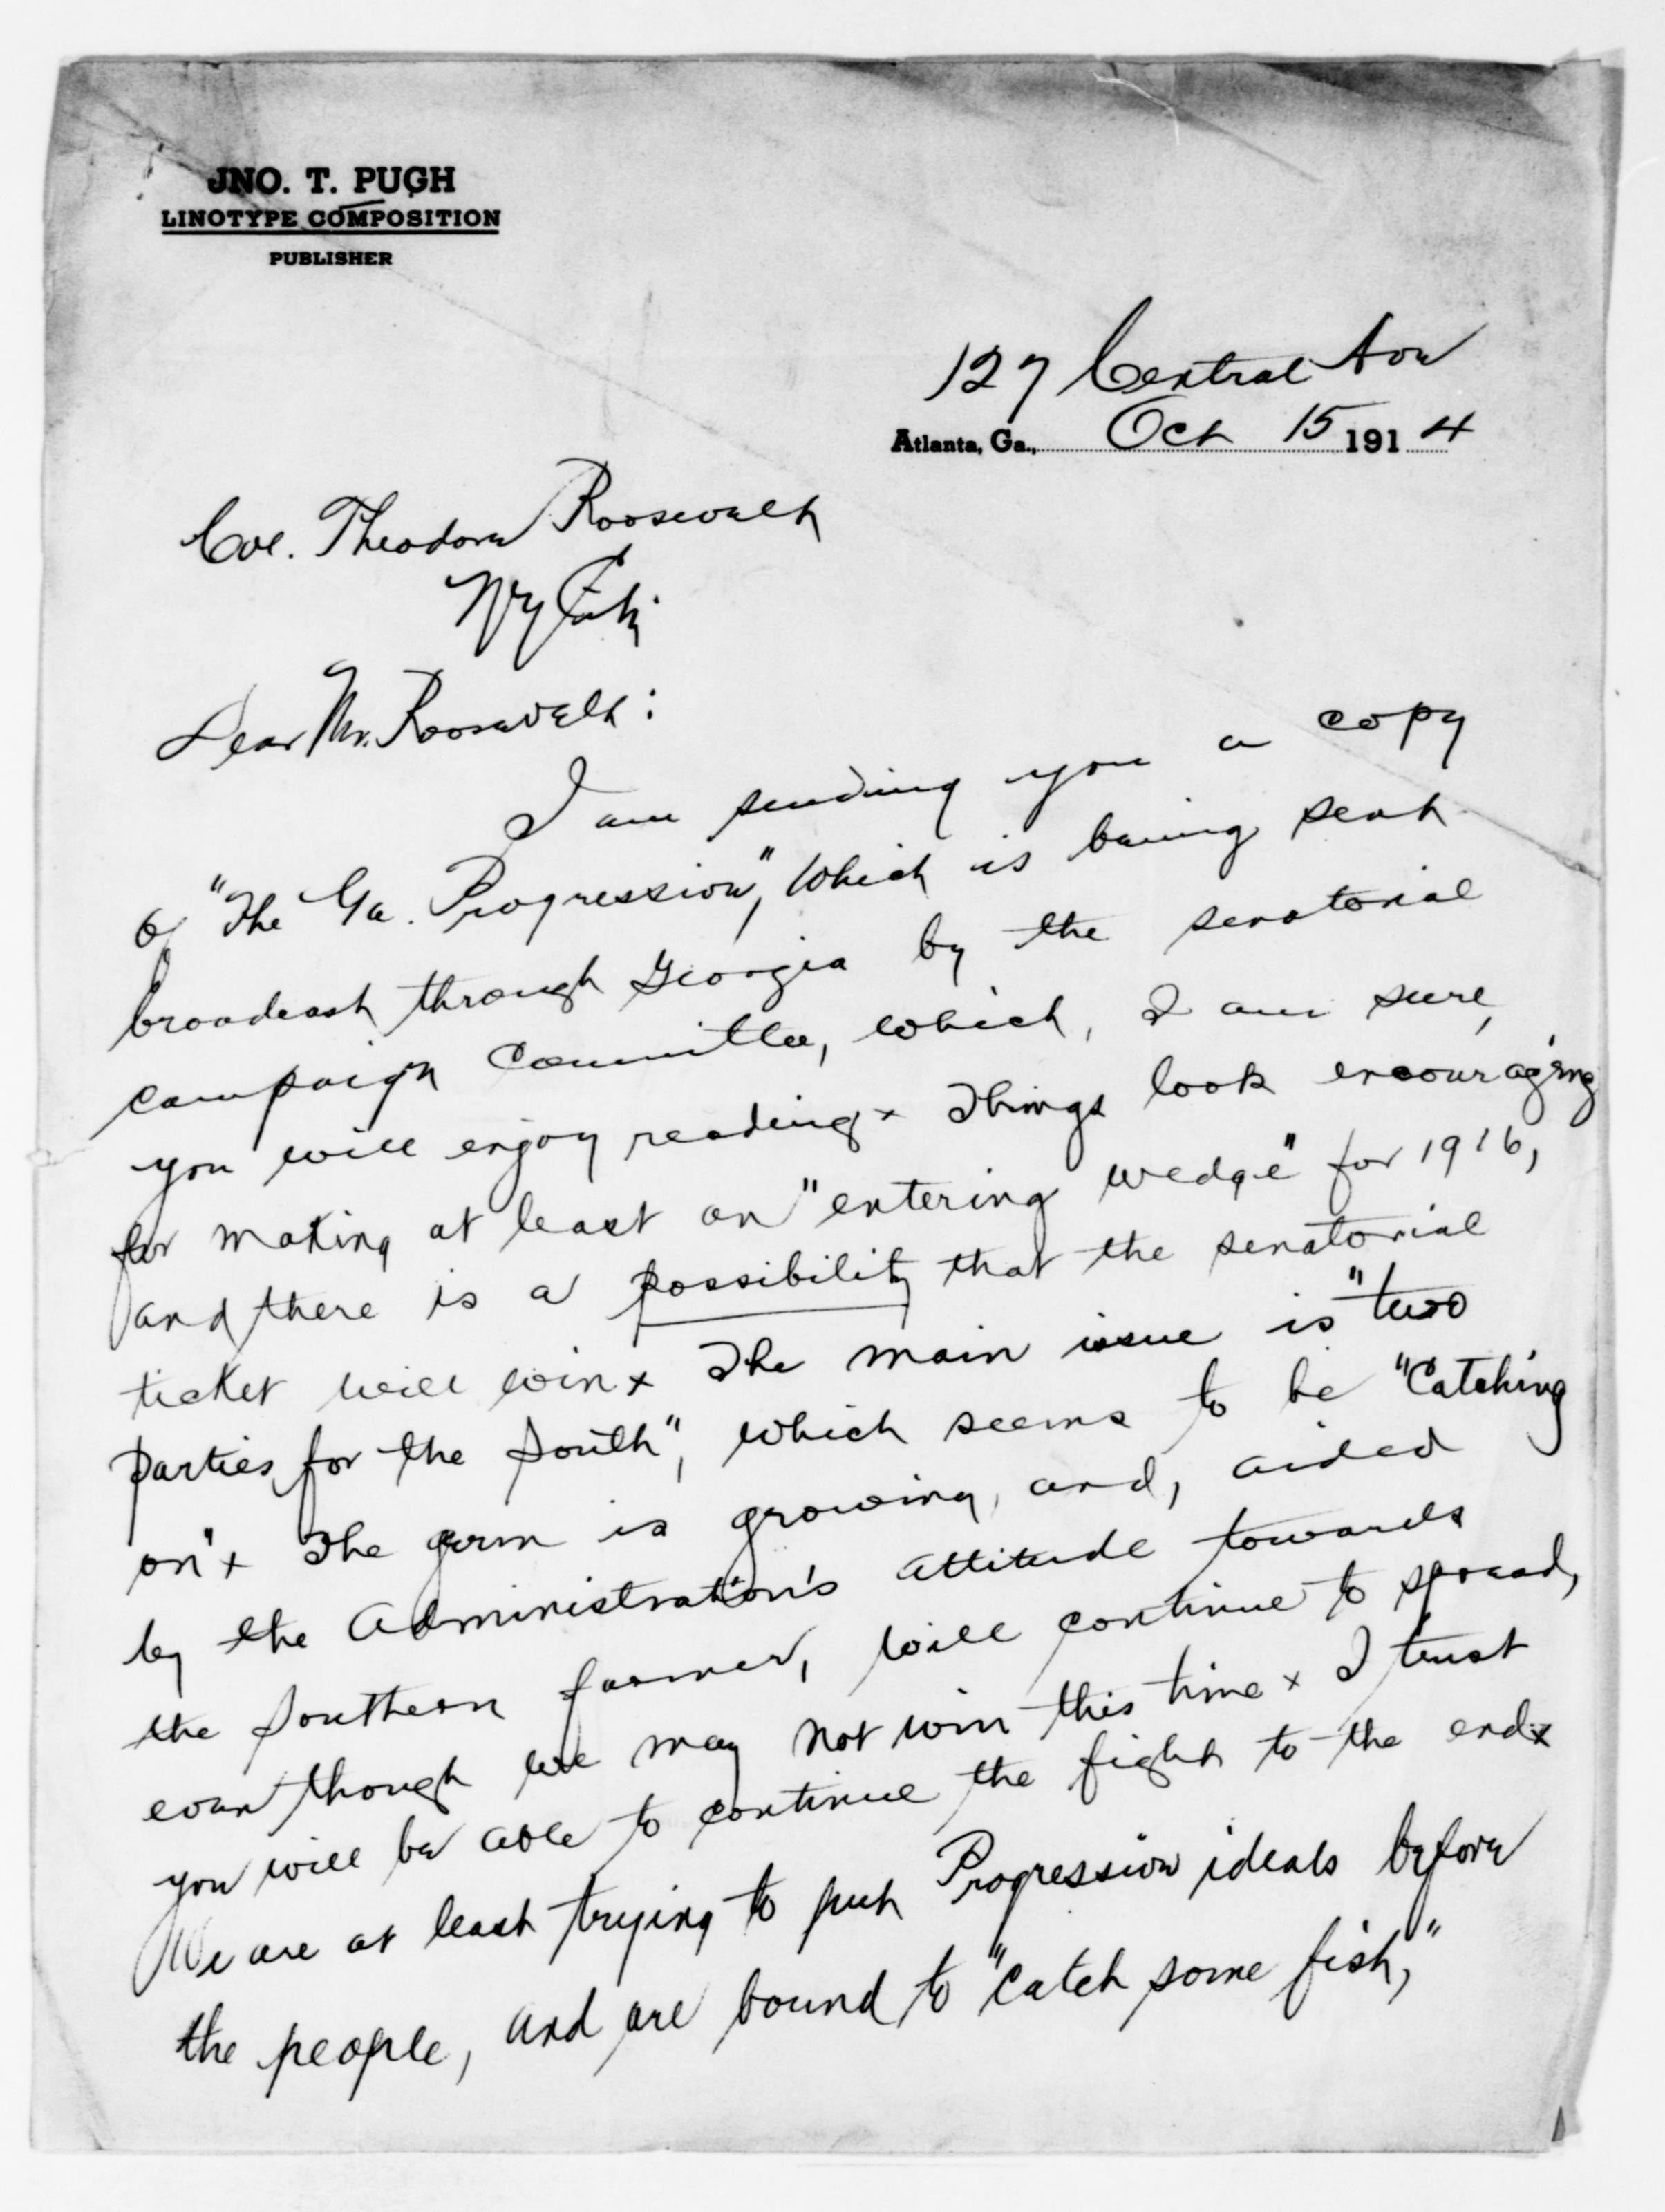 JNO. T. PUGH
LINOTYPE COMPOSITION
PUBLISHER
127 Central Ave
Atlanta, Ga., Oct 15 1914
Col. Theodore Roosevelt
NY City
Dear Mr. Roosevelt:
I am sending you a copy
of "The Ga. Progressive," which is being sent
broadcast through Georgia by the senatorial
campaign committee, which, I am sure,
you will enjoy reading x Things look encouraging
for making at least an "entering wedge" for 1916,
and there is a possibility that the senatorial
ticket will win x The main issue is "two
parties for the South", which seems to be "catching
on" x The germ is growing, and, aided
by the Administration's attitude towards
the Southern farmer, will continue to spread,
even though we may not win this time x I trust
you will be able to continue the fight to the end x
We are at least trying to put Progressive ideals before
the people, and are bound to "catch some fish,"